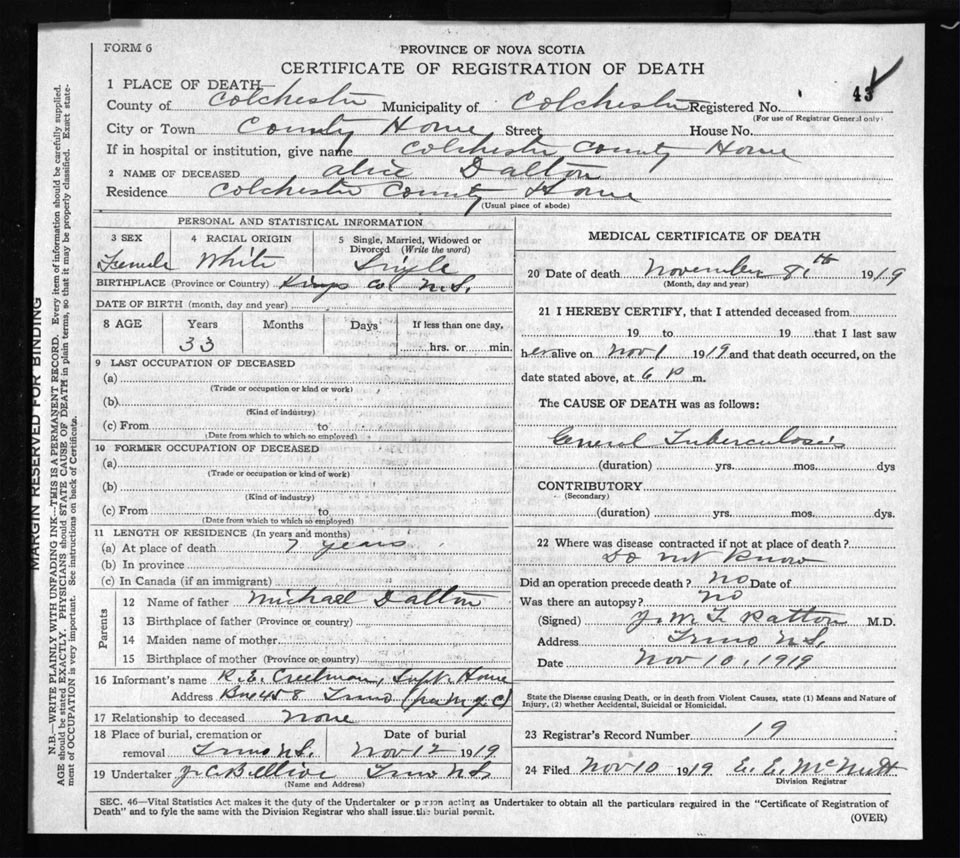 FORM 6
PROVINCE OF NOVA SCOTIA
CERTIFICATE OF REGISTRATION OF DEATH
1 PLACE OF DEATH
County of Colchester Municipality of Colchester Registered No. 43
(For use of Registrar General only)
City or Town County Home Street House No.
If in hospital or institution, give name Colchester County Home
2 NAME OF DECEASED Alice Dalton
Residence Colchester County Home
(Usual place of abode)
PERSONAL AND STATISTICAL INFORMATION
3 SEX 4 RACIAL ORIGIN 5 Single, Married, Widowed or Divorced (Write the word)
Female White Single
BIRTHPLACE (Province or Country) Kings Co N.S.
DATE OF BIRTH (month, day and year)
8 AGE Years Months Days If less than one day,
33 hrs. or min.
9 LAST OCCUPATION OF DECEASED
(a)
(Trade or occupation or kind or work)
(b)
(Kind of industry)
(c) From to
(Date from which to which so employed)
10 FORMER OCCUPATION OF DECEASED
(a)
(Trade or occupation or kind of work)
(b)
(Kind of industry)
(c) From to
(Date from which to which so employed)
11 LENGTH OF RESIDENCE (In years and months)
(a) At place of death 7 years
(b) In province
(c) In Canada (if an immigrant)
Parents
12 Name of father Michael Dalton
13 Birthplace of father (Province or country)
14 Maiden name of mother
15 Birthplace of mother (Province or country)
16 Informant's name R. E. Creelman, Supt. Home
Address Box 458 Truro
17 Relationship to deceased None
18 Place of burial, cremation or removal Truro N.S. Date of burial Nov 12 1919
19 Undertaker Truro N.S
(Name and Address)
MEDICAL CERTIFICATE OF DEATH
20 Date of death November 8th 1919
(Month, day and year)
21 I HEREBY CERTIFY, that I attended deceased from
19 to 19 that I last saw
her alive on Nov 1 1919 and that death occurred, on the
date stated above, at 6 P m.
The CAUSE OF DEATH was as follows:
General Tuberculosis
(duration) yrs. mos. dys
CONTRIBUTORY
(Secondary)
(duration) yrs. mos. dys.
22 Where was disease contracted if not at place of death?
Do not know
Did an operation precede death? no Date of
Was there an autopsy? no
(Signed) Patton M.D.
Address Truro N.S.
Date Nov 10, 1919
State the Disease causing Death, or in death from Violent Causes, state (1) Means and Nature of
Injury, (2) whether Accidental, Suicidal or Homicidal.
23 Registrar's Record Number 19
24 Filed Nov 10 1919 E. E. McNutt
Division Registrar
SEC. 46—Vital Statistics Act makes it the duty of the Undertaker or person acting as Undertaker to obtain all the particulars required in the "Certificate of Registration of
Death" and to fyle the same with the Division Registrar who shall issue the burial permit.
(OVER)
MARGIN RESERVED FOR BINDING
N.B.—WRITE PLAINLY WITH UNFADING INK—THIS IS A PERMANENT RECORD. Every item of information should be carefully supplied.
AGE should be stated EXACTLY. PHYSICIANS should STATE CAUSE OF DEATH in plain terms, so that it may be properly classified. Exact state-
ment of OCCUPATION is very important. See instructions on back of Certificate.